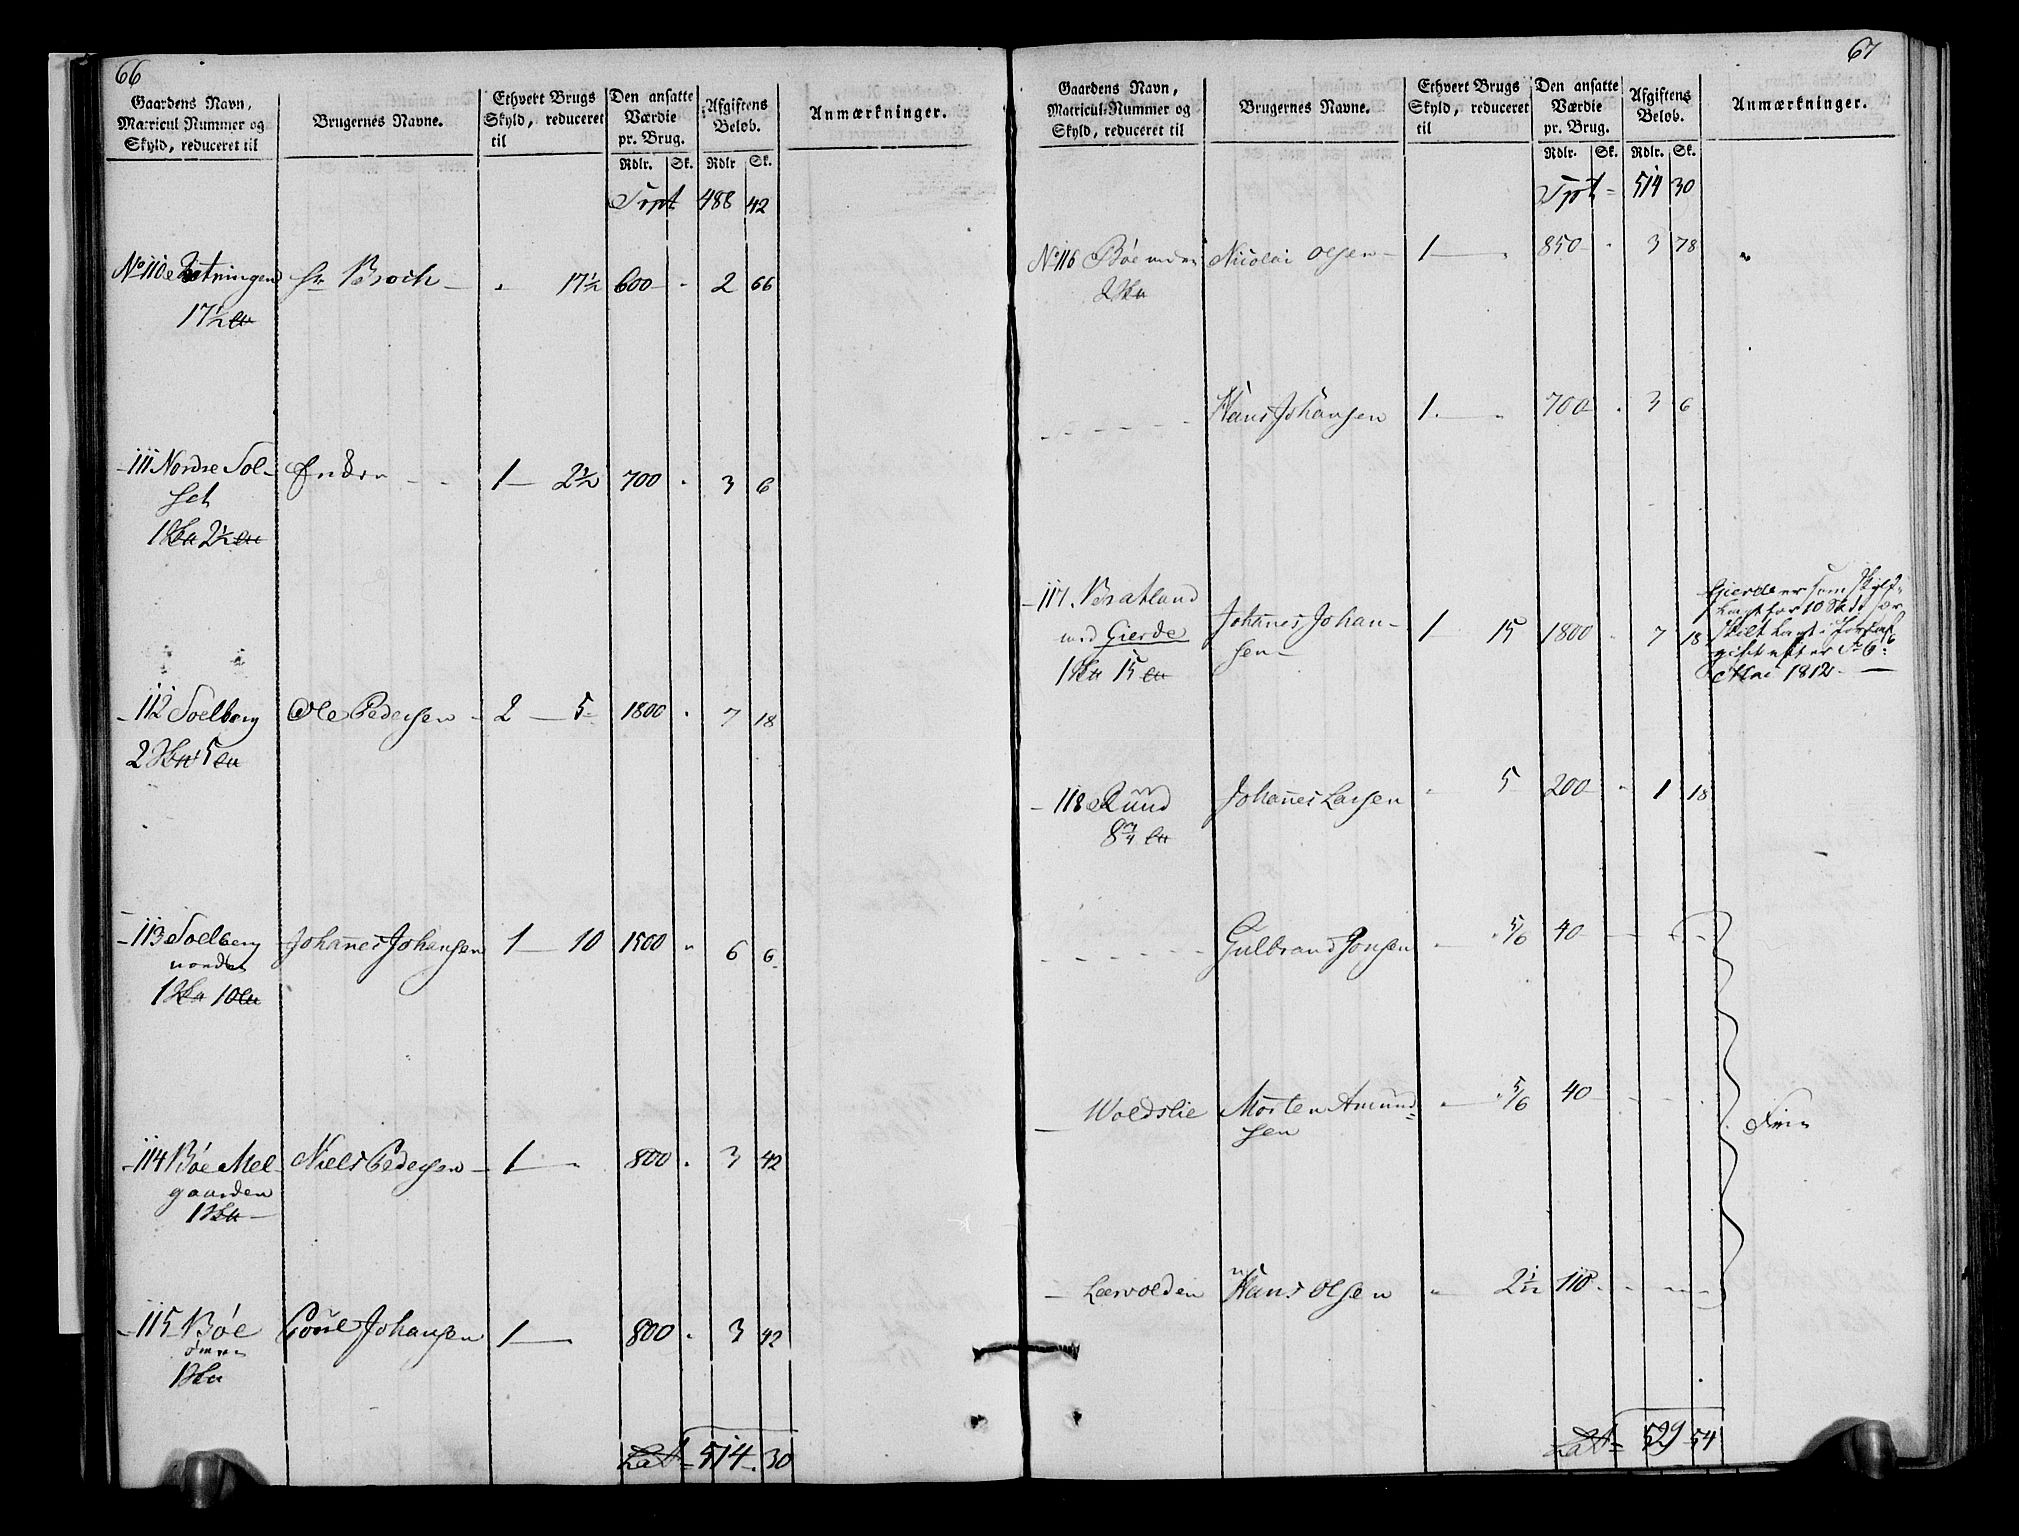 66
Gaardens Navn,
Matricul Nummer og
Skyld, reduceret til
Brugernes Navne.
Ethvert Brugs
Skyld, reduceret
til
Den ansatte
Værdie
pr. Brug.
Afgiftens
Beløb.
Anmærkninger.
Rdlr. Sk. Rdlr Sk.
Trpt 488 42
No 110 Hr Broch - " 17½ 600 - " 2 66
17½
- 111 Nordre Sol- 1 - 2½ 700 " 3 6
set
1 2½
- 112 Soelberg Ole Pedersen - 2 - 5 - 1800 " 7 18
2 5
- 113 Soelberg Johannes Johansen 1 - 10 1500 " 6 6
nordre
1 10
- 114 Bøe Mel- Niels Pedersen - 1 - " 800 " 3 42
gaarden
1
- 115 Bøe Johansen 1 - 800 " 3 42
1
Lat = 514 - 30
67
Gaardens Navn,
Matricul-Nummer og
Skyld, reduceret til
Brugernes Navne.
Ethvert Brugs
Skyld, reduceret
til
Den ansatte
Værdie
pr. Brug.
Afgiftens
Beløb.
Anmærkninger.
Rdlr. Sk. Rdlr. Sk.
Trpt = 514 30
No 116 Bøe Nicolai Olsen - 1 - " 850 - " 3 78 "
2
- - - - - Hans Johansen 1 - " 700 " 3 6
- 117. Bratland Johannes Johan- 1 - 15 1800 " 7 18
med Gierde sen -
1 15
Gierde er som Skyld-
10
Mai 1812 -
- 118 Ruud Johannes Larsen " 5 200 " 1 18
8¾
- - - - - Gulbrand Jonsen " 5/6 40 - - -
- Woldslie Morten Amund= " 5/6 40 - - -
sen
- Leervolden Hans Olsen " 2½ 110 - - -
Lat = 529 54